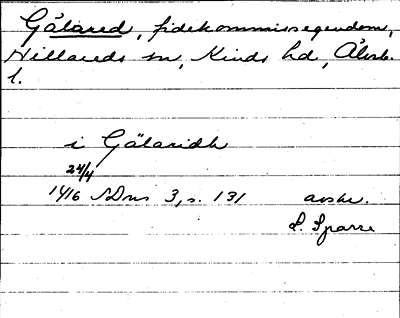 Gälared, fideikommissegendom,
Hillareds sn, Kinds hd, Älvsb.
l.
i Gälaridh
24/4
1416 SDns 3, s. 131 avskr.
L. Sparre